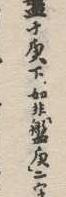 盤于庚下如非盤庚二字